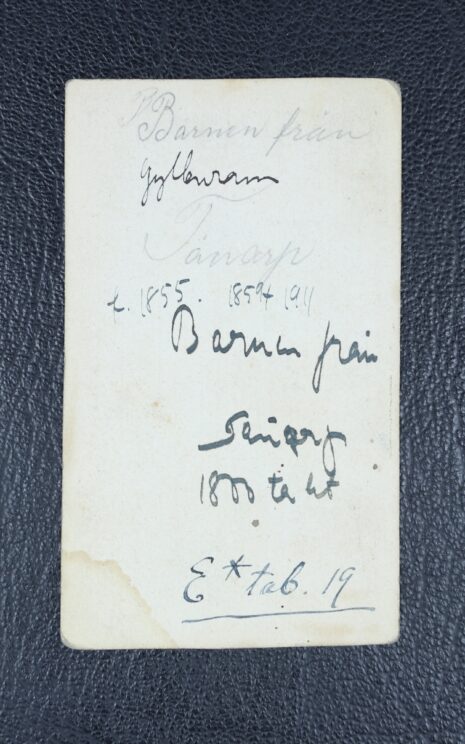 Barnen från
Tånarp
f. 1855. 1859 1911
Barnen från
Tånarp
1800 talet
E* tab. 19